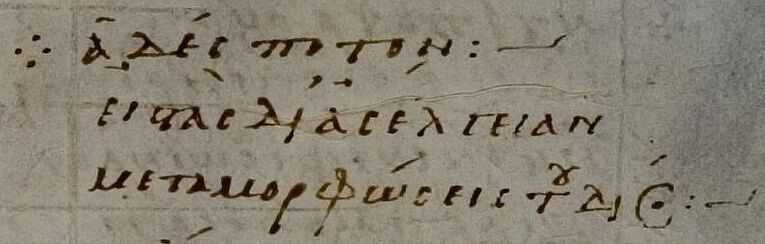 ⁘ ἀδέσποτον:—
εἰ τὰς δι' ἀσέλγειαν
μεταμορφώσεις τοῦ Δι(ό)ς:—